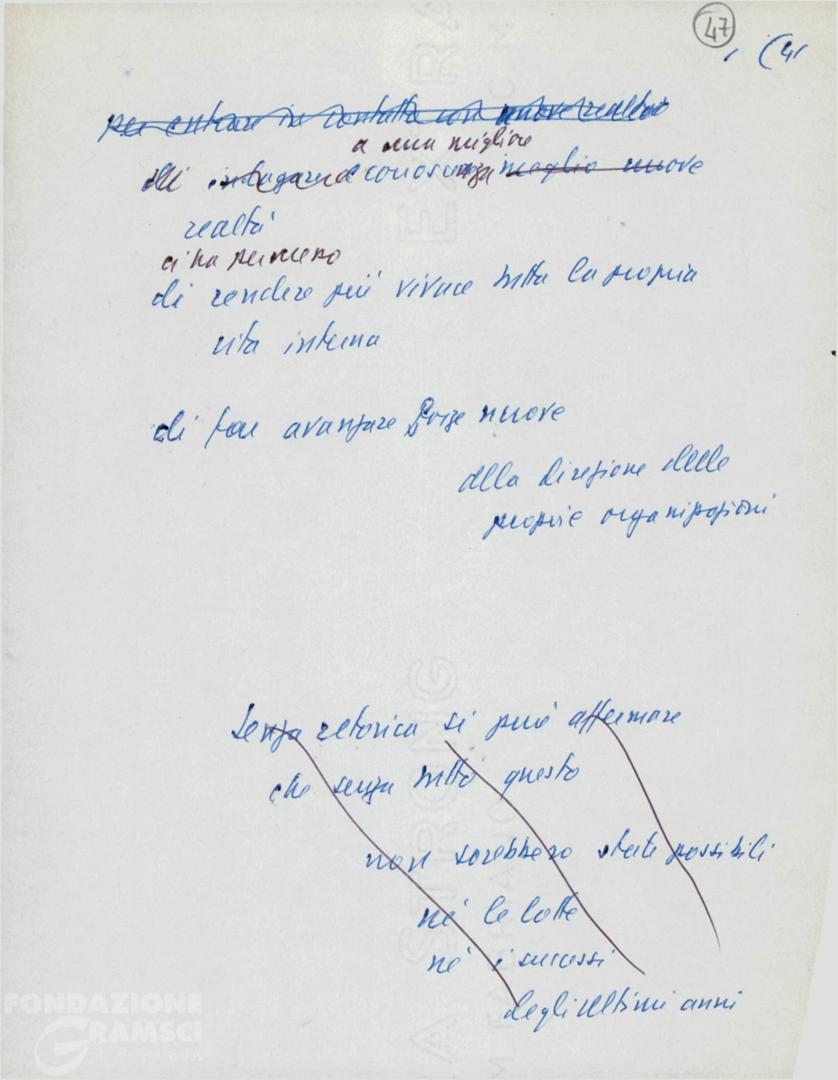 47
(41
per entrare in contatto con nuove realtà
a una migliore
di indagare e conoscenza meglio nuove
realtà
ci ha permesso
di rendere più vivace tutta la propria
vita interna
di far avanzare forze nuove
alla direzione delle
proprie organizzazioni
Senza retorica si può affermare
che senza tutto questo
non sarebbero state possibili
né le lotte
né i successi
degli ultimi anni
FONDAZIONE
GRAMSCI
onlus